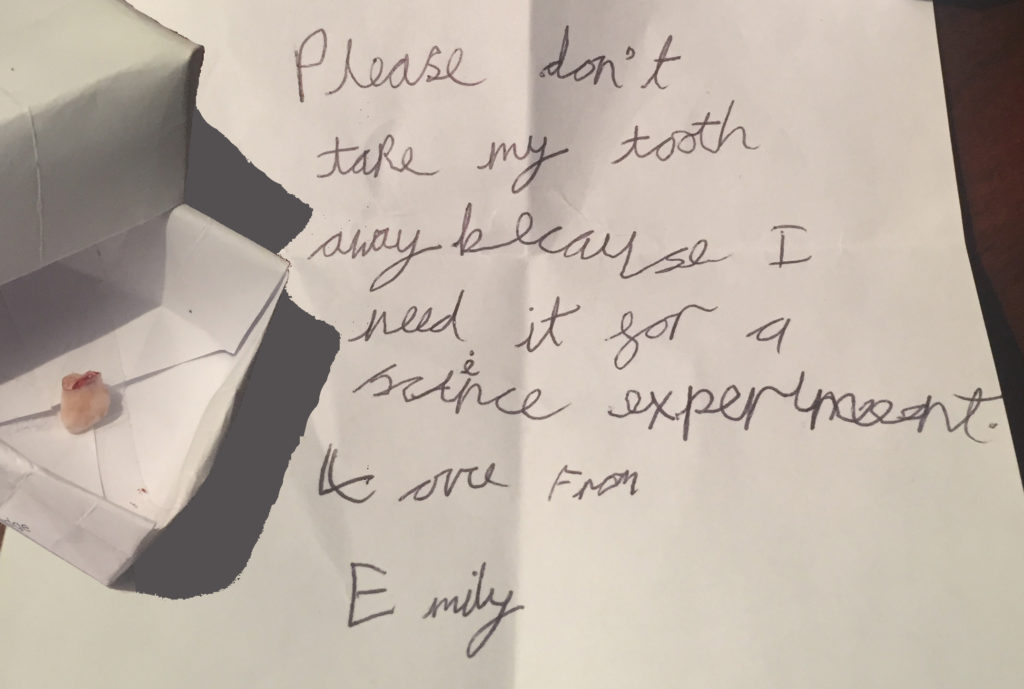 Please don't
take my tooth
away because I
need it for a
science experiment.
Love From
Emily